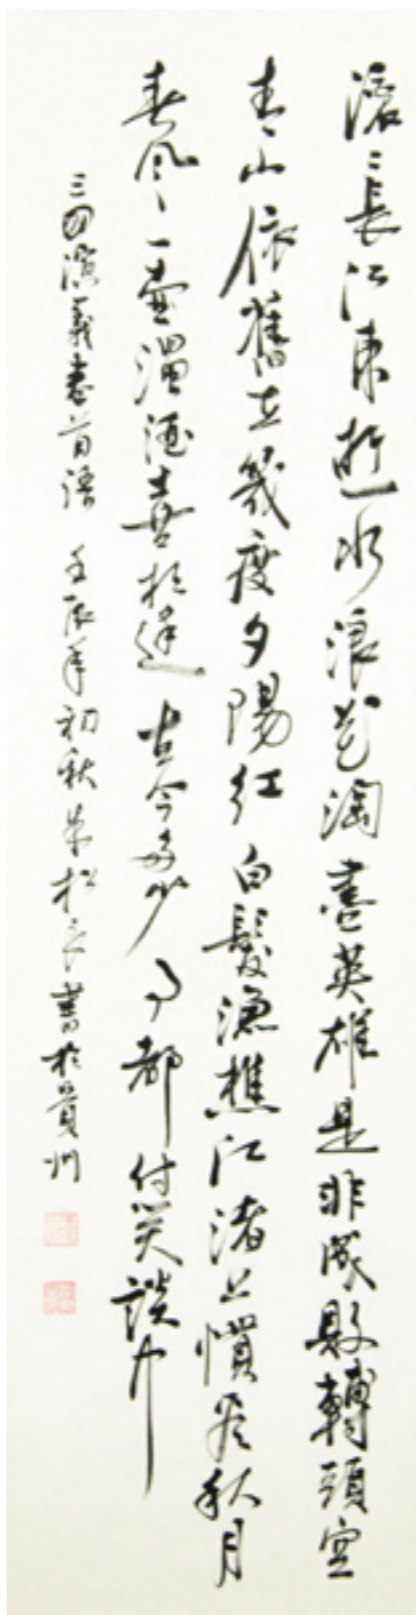 滚〻長江東逝水浪花淘盡英雄是非成敗轉頭空
青山依舊在幾度夕陽紅白髮漁樵江渚上慣看秋月
春風〻一壺濁酒喜相逢古今多少事都付笑談中
三國演義卷首語 壬辰年初秋朱松之書於貴州